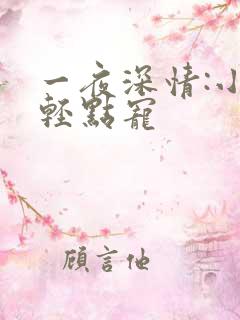 一夜深情:小
輕點寵
顧言他